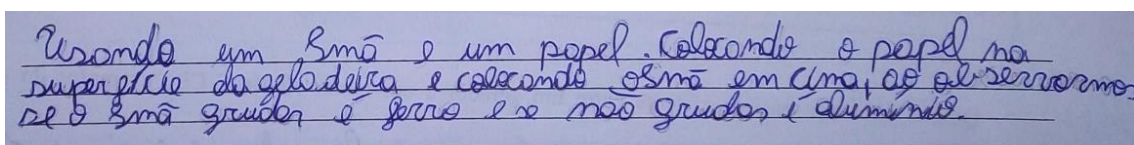 Usando um Imã e um papel. Colocando o papel na
superfície da geladeira e colocando o Imã em cima, ao observarmos
se o Imã grudar é ferro e se não grudar é aluminio.